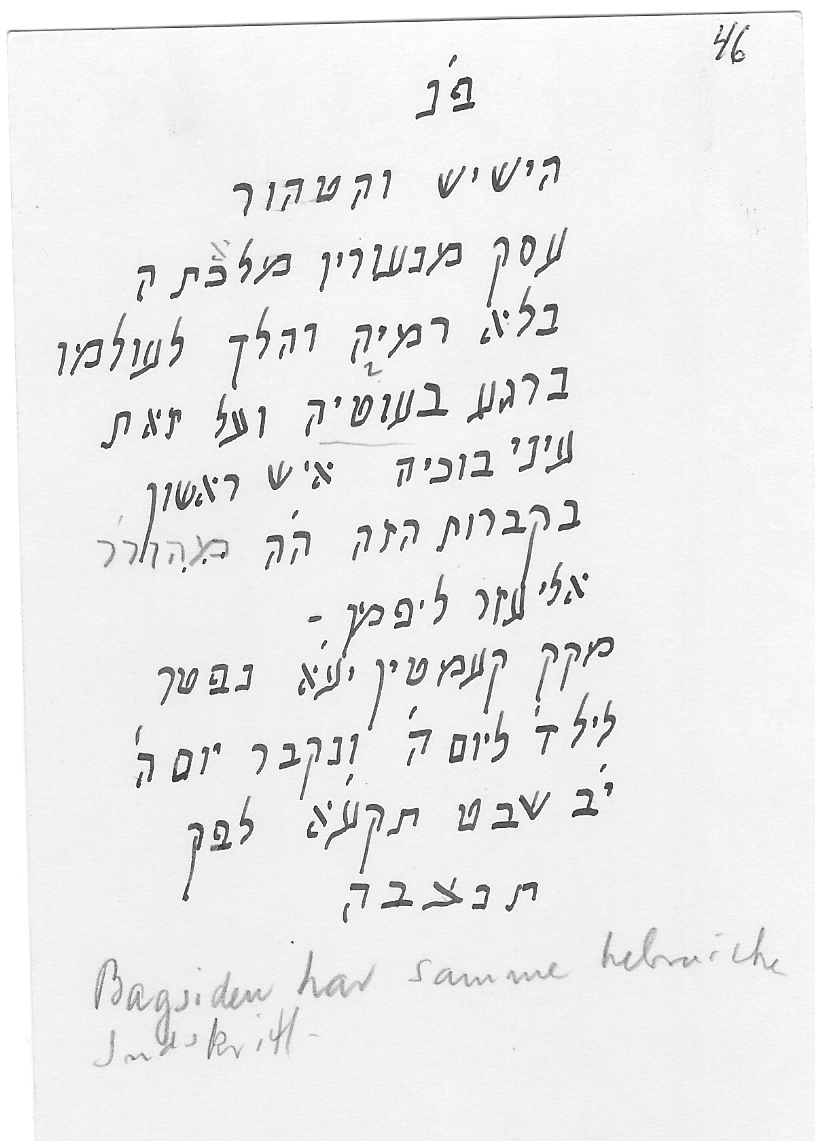 46
פ'נ
הישיש והטהור
עסק מנעורין מלכתה
בלא רמיה והלך לעולמו
ברגע בעוטיה ועל זאת
עיני בוכיה איש ראשון
בקברות הזה ה'ה מהורר
אליעזר ליפמן -
מקק קעמטין יע'א נפטר
ליל ד' ליום ה' ונקבר יום ה'
י'ב שבט תקע'א לפק
תנצבה
Bagsiden har samme hebraiche
Indskrift -